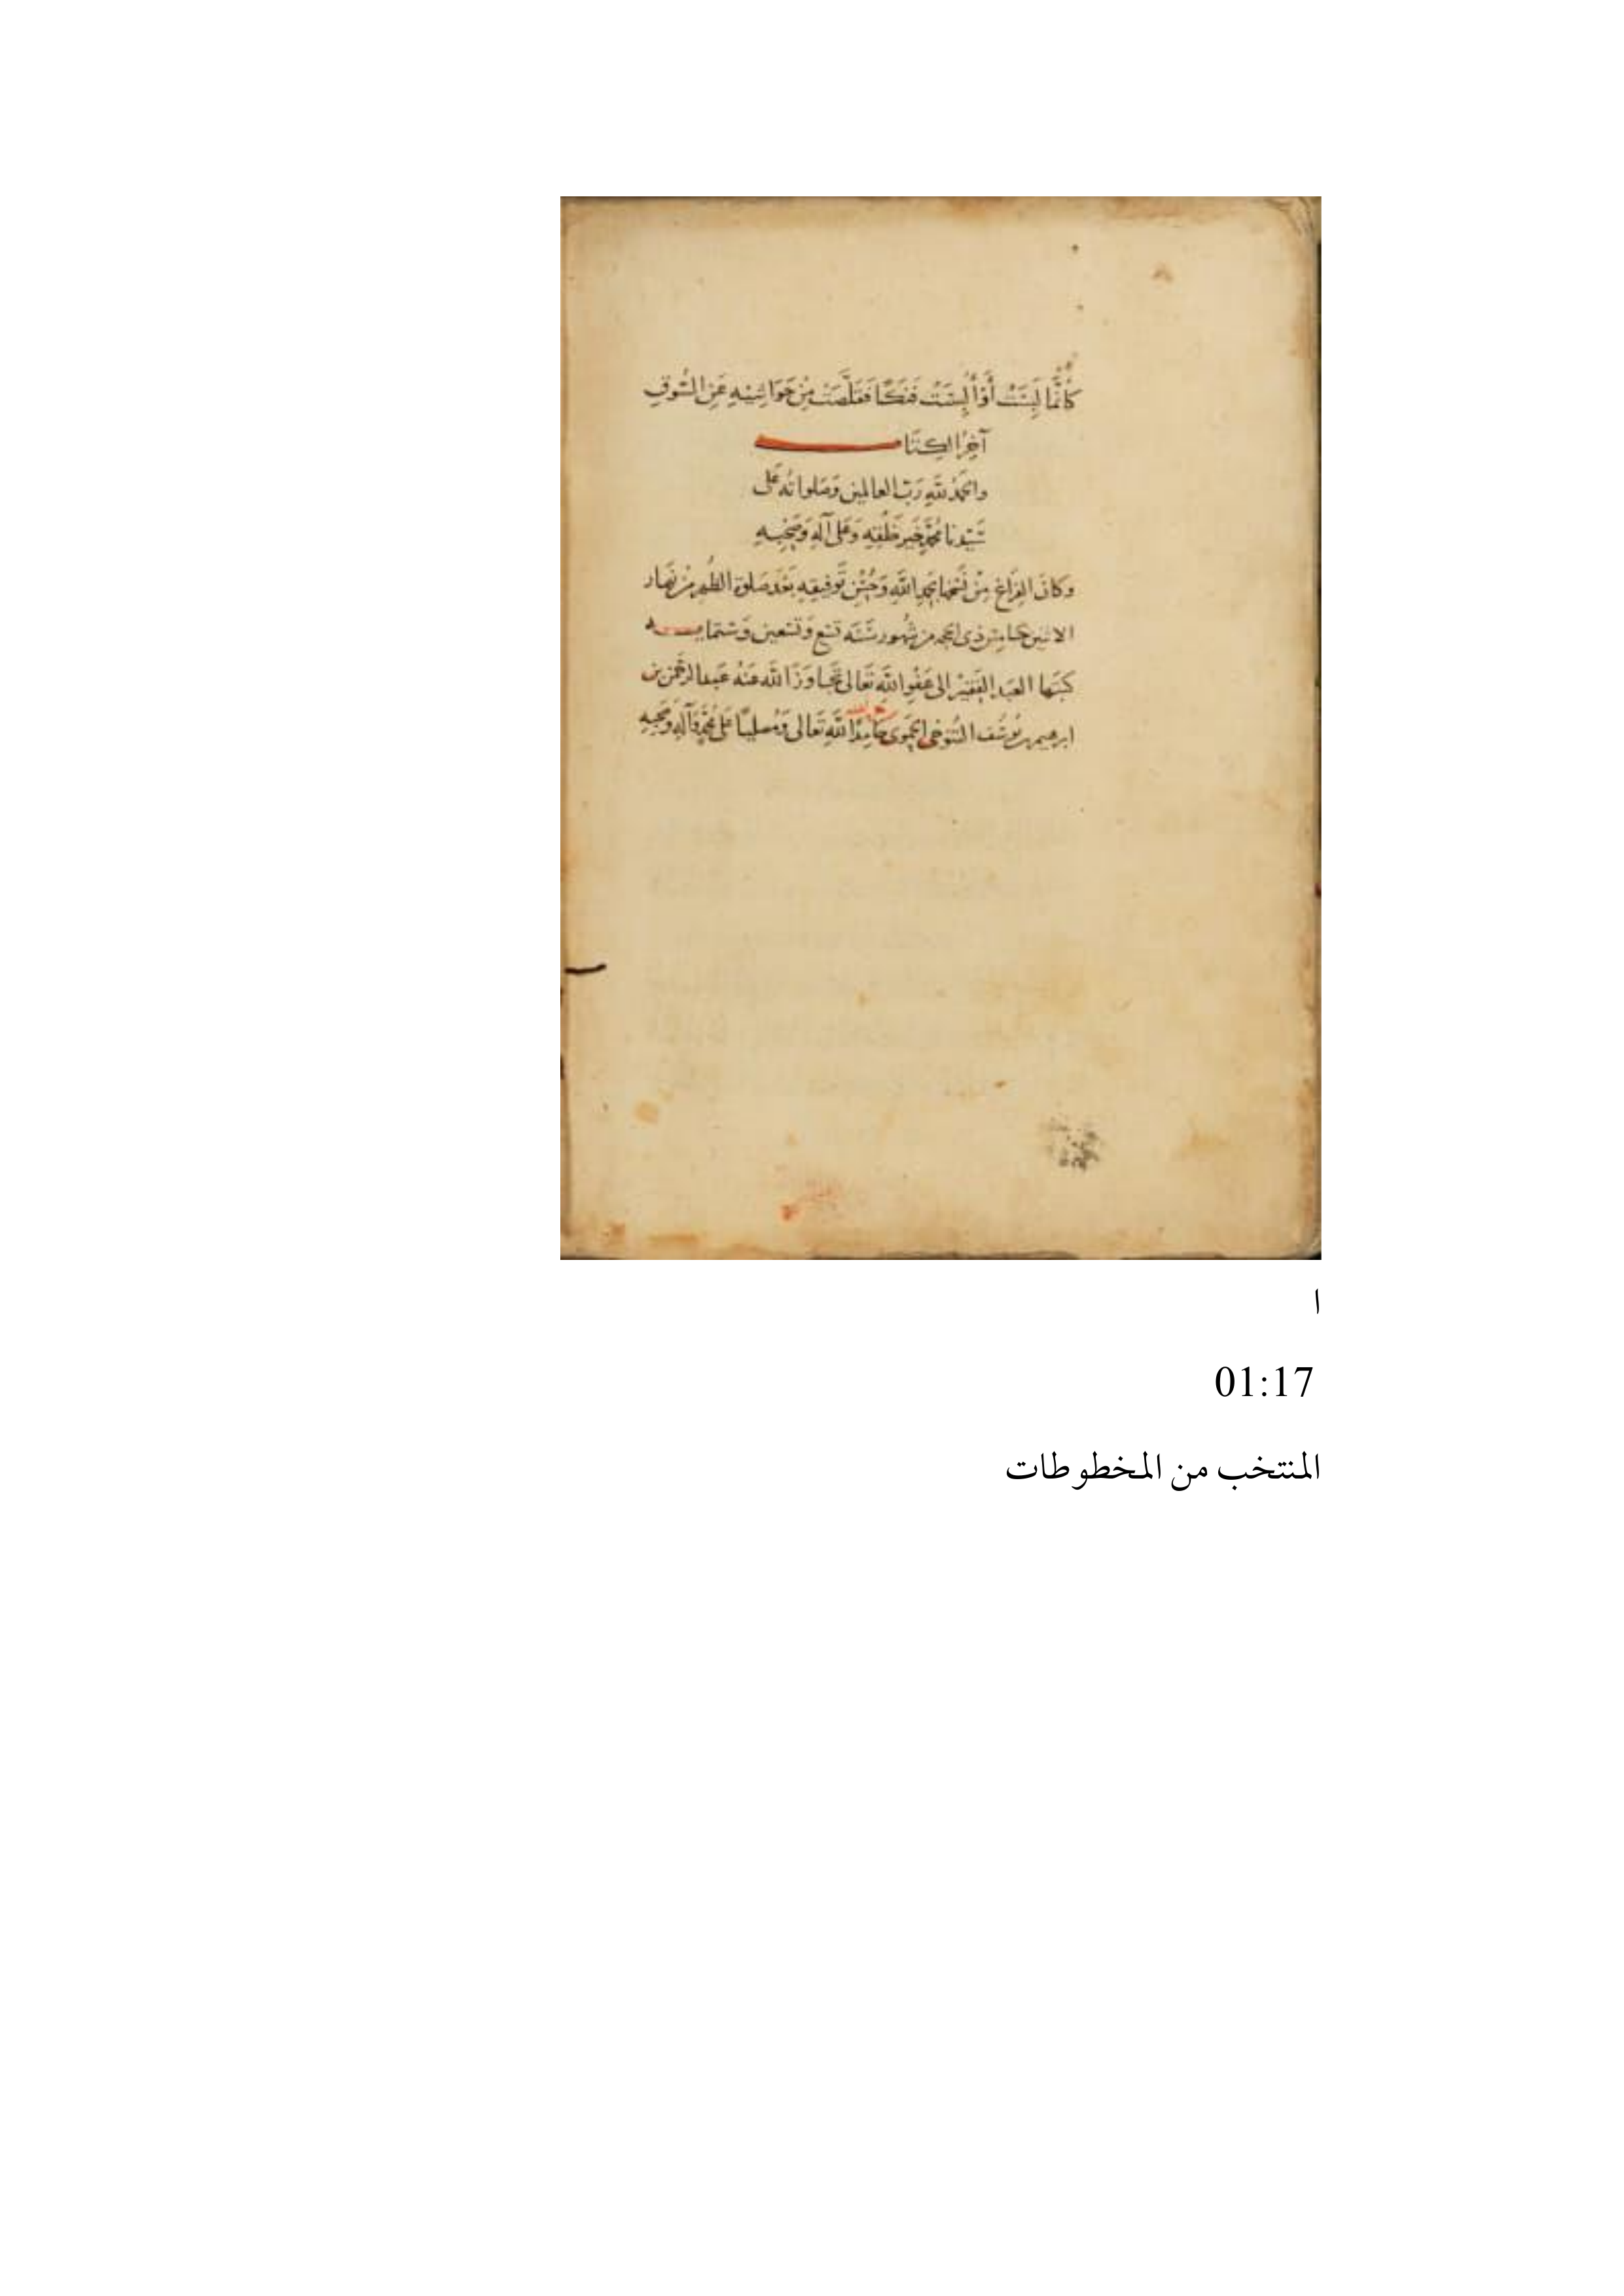 كَأَنَّمَا لَبِسَتْ أَوْ أُلْبِسَتْ فَنَكًا فَقَلَّصَتْ مِنْ حَوَاشِيْهِ عَنِ السُّوقِ
آخِرُ الكِتَاب
والحَمْدُ للهِ رَبِّ العالمين وَصَلواتُه عَلى
سَيّدنا مُحَمَّدٍ خَيرِ خَلْقِهِ وَعَلى آلهِ وَصَحْبِهِ
وَكانَ الفِرَاغ مِنْ نَسْخِها بحَمدِ اللَّهِ وَحُسْنِ تَوفيقِهِ بَعْدَ صَلوة الظُهرِ مِنْ نَهار
الاثنين خامس ذى الحجه من شُهور سَنَه تسْع وَتسْعين وَستمايه
كَتبَها العَبد الفَقيْر الى عَفْوِ اللهِ تَعَالى تجَاوَزَ الله عَنهُ عَبدالرحْمن بن
ابرهيم بن يُوسُف التنوخى الحَمَوى حَامِدًا للهِ تَعَالى وَمُصَليًا عَلى مُحَمَّدٍ وَآلهِ وَصَحبِهِ
ا
01:17
المنتخب من المخطوطات